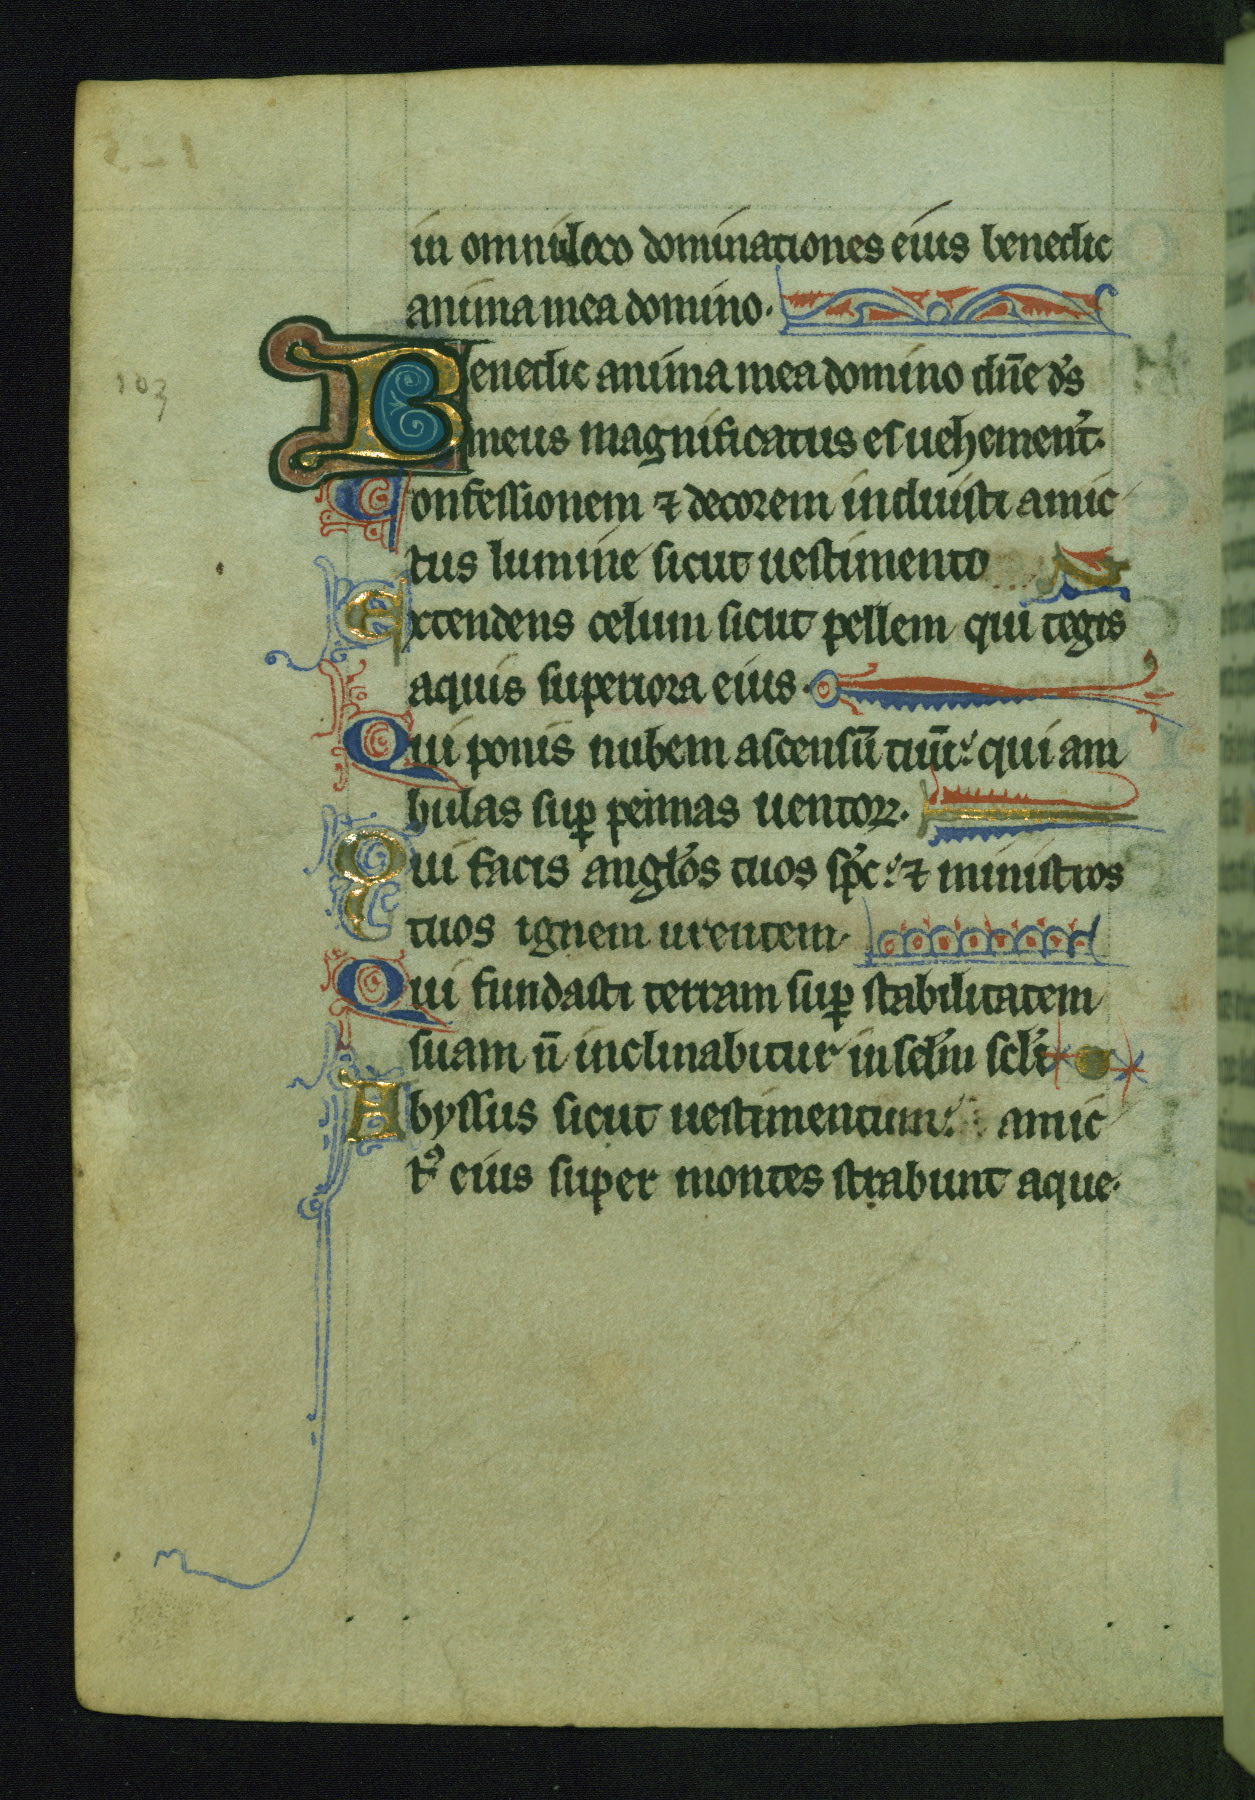 in omni loco dominationes eius benedic
anima mea domino.
Benedic anima mea domino dn̄e ds̉
meus magnificatus es uehement̉.
Confessionem ⁊ decorem induisti amic
tus lumine sicut uestimento
Extendens celum sicut pellem qui tegis
aquis superiora eius.
103
Qui ponis nubem ascensū tuū: qui am
bulas suꝑ pennas uentoꝝ.
Qui facis anglos tuos sp̃c: ⁊ ministros
tuos ignem urentem.
Qui fundasti terram suꝑ stabilitatem
suam n̄ inclinabitur in sclm̃ sclỉ
Abyssus sicut uestimentum: amic
tꝰ eius super montes stabunt aque.